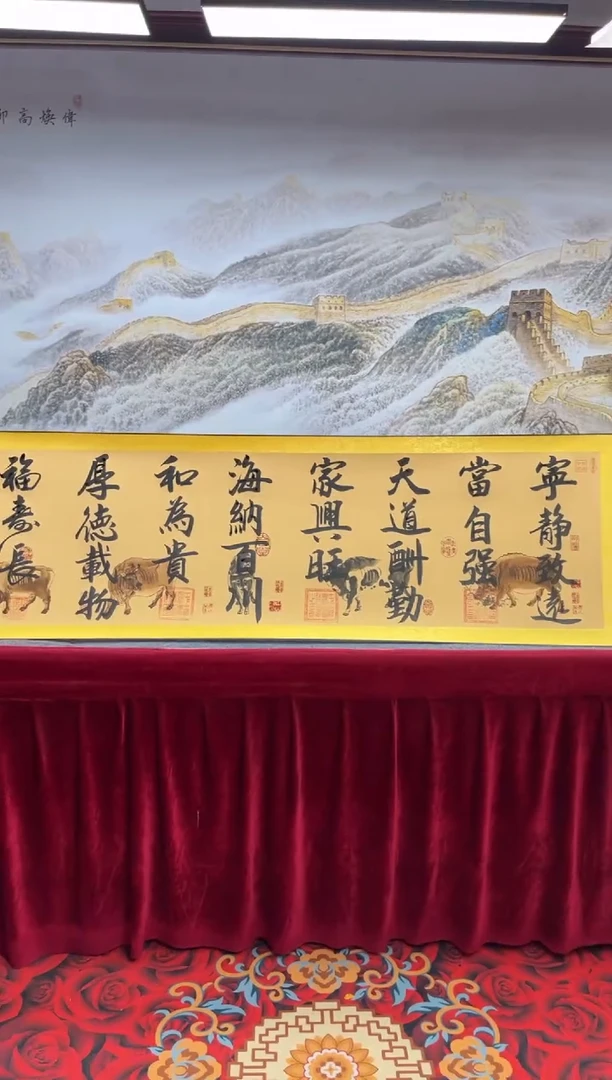 高煥偉
寧靜致遠
當自强
天道酬勤
家興旺
海納百川
和為貴
厚德載物
福壽長